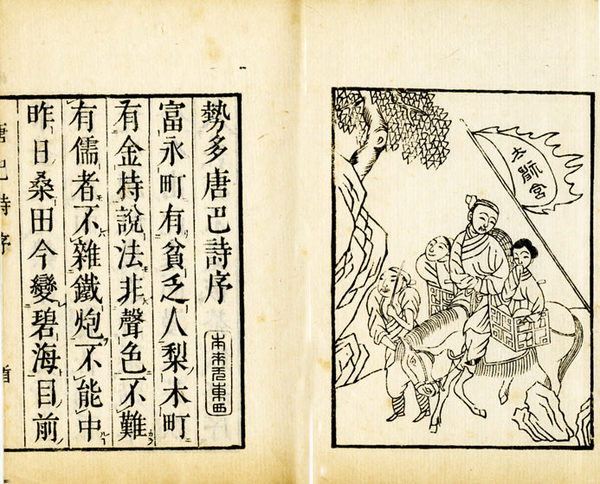 勢多唐巴詩序
本來无東西
富永町有貧乏人梨木町
有金持說法非聲色不難
有儒者不雜鐵炮不能中
昨日桑田今變碧海目前
唐巴詩序